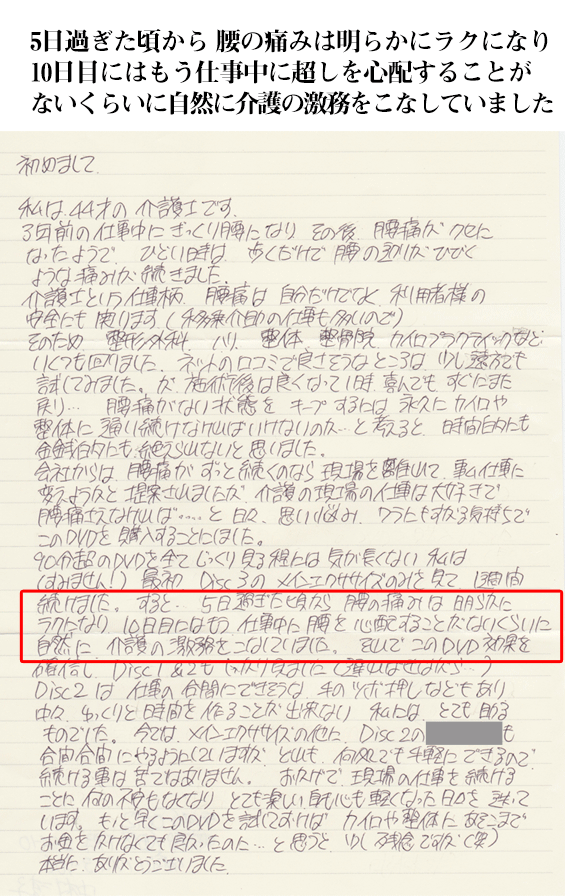 5日過ぎた頃から 腰の痛みは明らかにラクになり
10日目にはもう仕事中に超しを心配することが
ないくらいに自然に介護の激務をこなしていました
初めまして。
私は 44才の 介護士です。
3年前の仕事中に ぎっくり腰になり その後、腰痛が クセに
なったようで、ひどい時は、歩くだけで 腰の辺りが ひびく
ような痛みが 続きました。
介護士という仕事柄、腰痛は 自分だけでなく 利用者様の
安全にも 関わります（移乗介助の仕事も多いので）
そのため 整形外科、ハリ、整体、整骨院、カイロプラクティックなど
いくつも回りました。ネットの口コミで良さそうなところは 少し遠方でも
試してみました。が、施術後は良くなって1日、喜んでも すぐにまた
戻り… 腰痛がない状態を キープするには 永久に カイロや
整体に 通い続けなければいけないのか…と考えると、時間的にも
金銭的にも 続えられないと思いました。
会社からは、腰痛が ずっと続くのなら 現場を離れて、事ム仕事に
変えようかと 提案されましたが、介護の現場の仕事は大好きで
腰痛さえなければ……と 日々、思い悩み、ワラにもすがる気持ちで
このDVDを購入することにしました。
90分超のDVDを全て じっくり 見る程には 気が長くない 私は
（すみません！）最初 Disc3の メインエクササイズのみを見て 1週間
続けました。すると、5日過ぎた頃から 腰の痛みは 明らかに
ラクになり、10日目にはもう 仕事中に 腰を 心配することがないくらいに
自然に 介護の激務を こなしていました。それで このDVD効果を
確信し、Disc1&2も じっくり見ました（遅ればせながら…）
Disc2は 仕事の合間にできそうな、手のツボ押しなどもあり
中々、ゆっくりと 時間を 作ることが出来ない 私には、とても 助る
ものでした。今では、メインエクササイズの他に、Disc2の も
合間合間にやるようにしていますが とれも、何処でも手軽に できるので
続ける事は 苦ではありません。 おかげで、現場の仕事を 続ける
ことに 何の不安もなくなり とても楽しい 身も心も 軽くなった 日々を 送って
います。もっと早く このDVDを試しておけば カイロや整体に あそこまで
お金をかけなくても良かったのに…と思うと、少し残念ですが（笑）
本当に ありがとうございました。